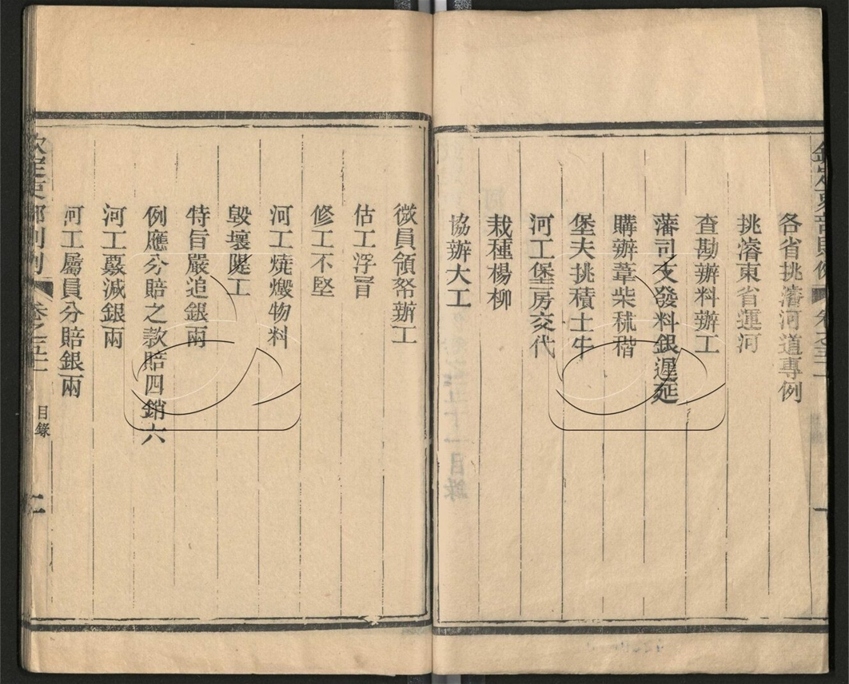 各省挑濬河道專例
挑濬東省運河
查勘辦料辦工
藩司支發料銀遲延
購辦葦柴秫稭
堡夫挑積土牛
河工堡房交代
栽種楊柳
協辦大工
微員領帑辦工
估工浮冒
修工不堅
河工燒燬物料
毀壞隄工
特旨嚴追銀兩
例應分賠之款賠四銷六
河工覈減銀兩
河工屬員分賠銀兩
目錄